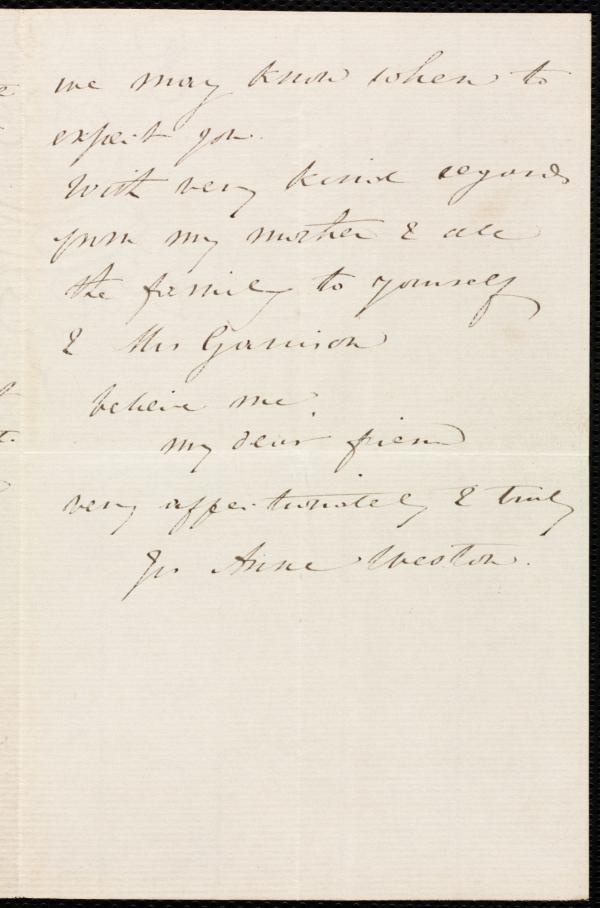 we may know when to
expect you.
With very kind regards
from my mother & all
the family to yourself
& Mrs Garrison
believe me,
my dear friend
very affectionately & truly
Yrs Anne Weston.